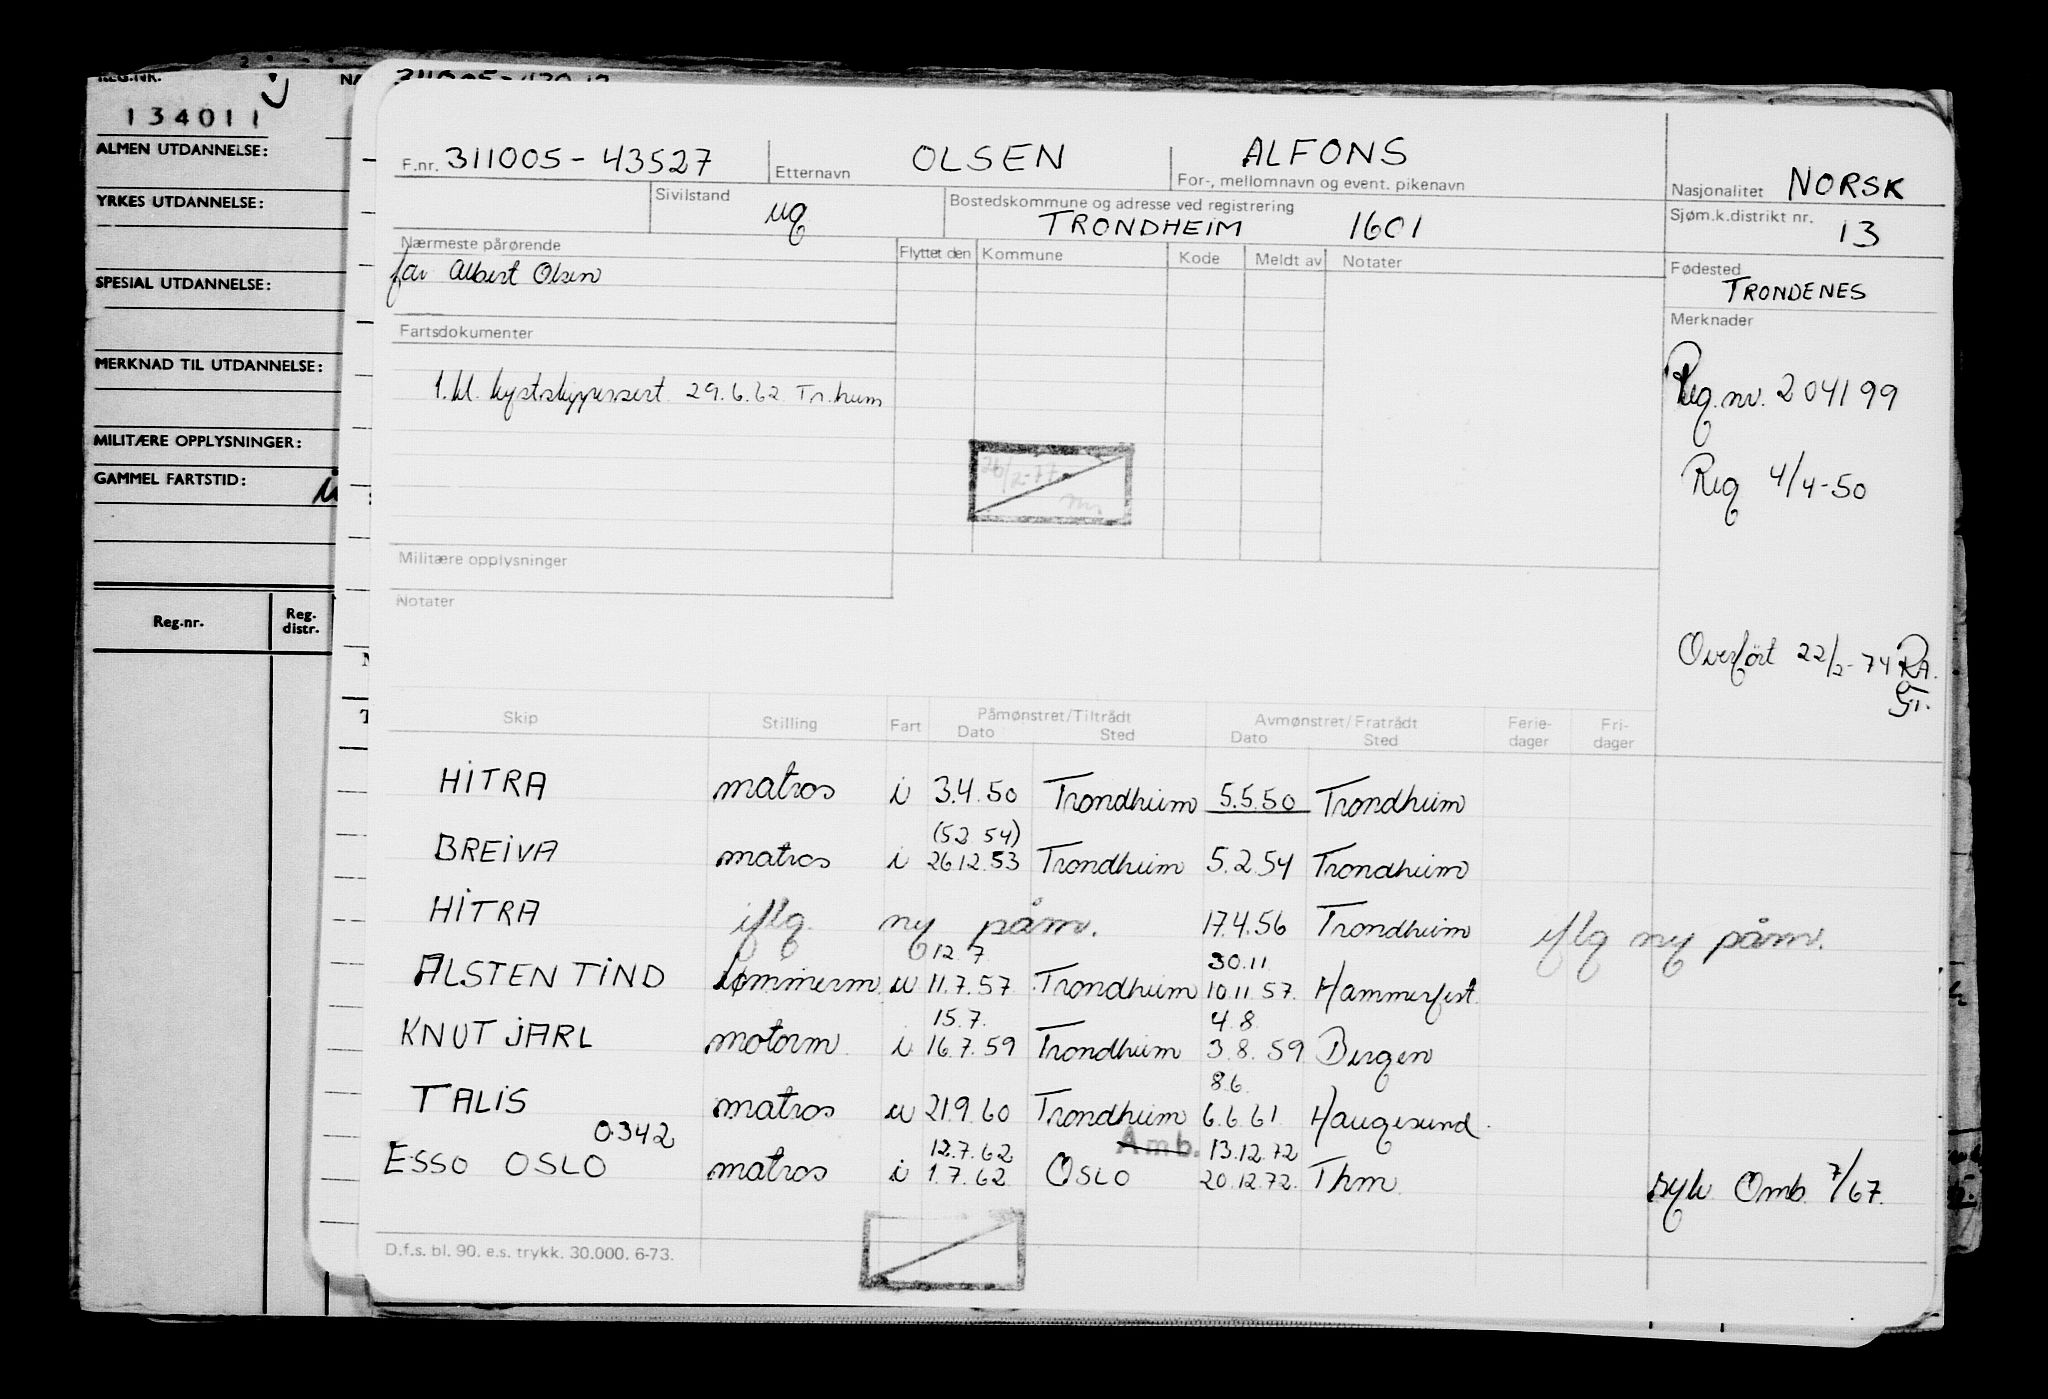 REG.NR.
134011
ALMEN UTDANNELSE:
YRKES UTDANNELSE:
SPESIAL UTDANNELSE:
MERKNAD TIL UTDANNELSE:
MILITÆRE OPPLYSNINGER:
GAMMEL FARTSTID:
Reg.nr. Reg. distr.
F.nr. 311005-43527 Etternavn OLSEN ALFONS For-, mellomnavn og event. pikenavn Nasjonalitet NORSK
Sivilstand ug Bostedskommune og adresse ved registrering TRONDHEIM 1601 Sjøm.k.distrikt nr. 13
Nærmeste pårørende Flyttet den Kommune Kode Meldt av Notater Fødested
far Albert Olsen TRONDENES
Fartsdokumenter Merknader
1.kl. kystskippersert 29.6.62 Tr.heim Reg.nr. 204199
26/2-77
Reg 4/4-50
Militære opplysninger
Notater
Overført 22/2-74 RA.
G.T.
Skip Stilling Fart Påmønstret/Tiltrådt Dato Sted Avmønstret/Fratrådt Dato Sted Ferie-dager Fri-dager
HITRA matros i 3.4.50 Trondheim 5.5.50 Trondheim
(5.2 54)
BREIVA matros i 26.12.53 Trondheim 5.2.54 Trondheim
HITRA iflg. ny påm. 17.4.56 Trondheim iflg ny påm.
12.7 30.11
ALSTEN TIND tømmerm. u 11.7.57 Trondheim 10.11.57. Hammerfest
15.7. 4.8
KNUT JARL motorm. i 16.7.59 Trondheim 3.8.59 Bergen
8.6.
TALIS matros u 21.9.60 Trondheim 6.6.61 Haugesund.
0.342 12.7.62 Amb. 13.12.72
ESSO OSLO matros i 1.7.62 OSLO 20.12.72. Thm. syk Omb. 7/67.
D.f.s. bl. 90. e.s. trykk. 30.000. 6-73.